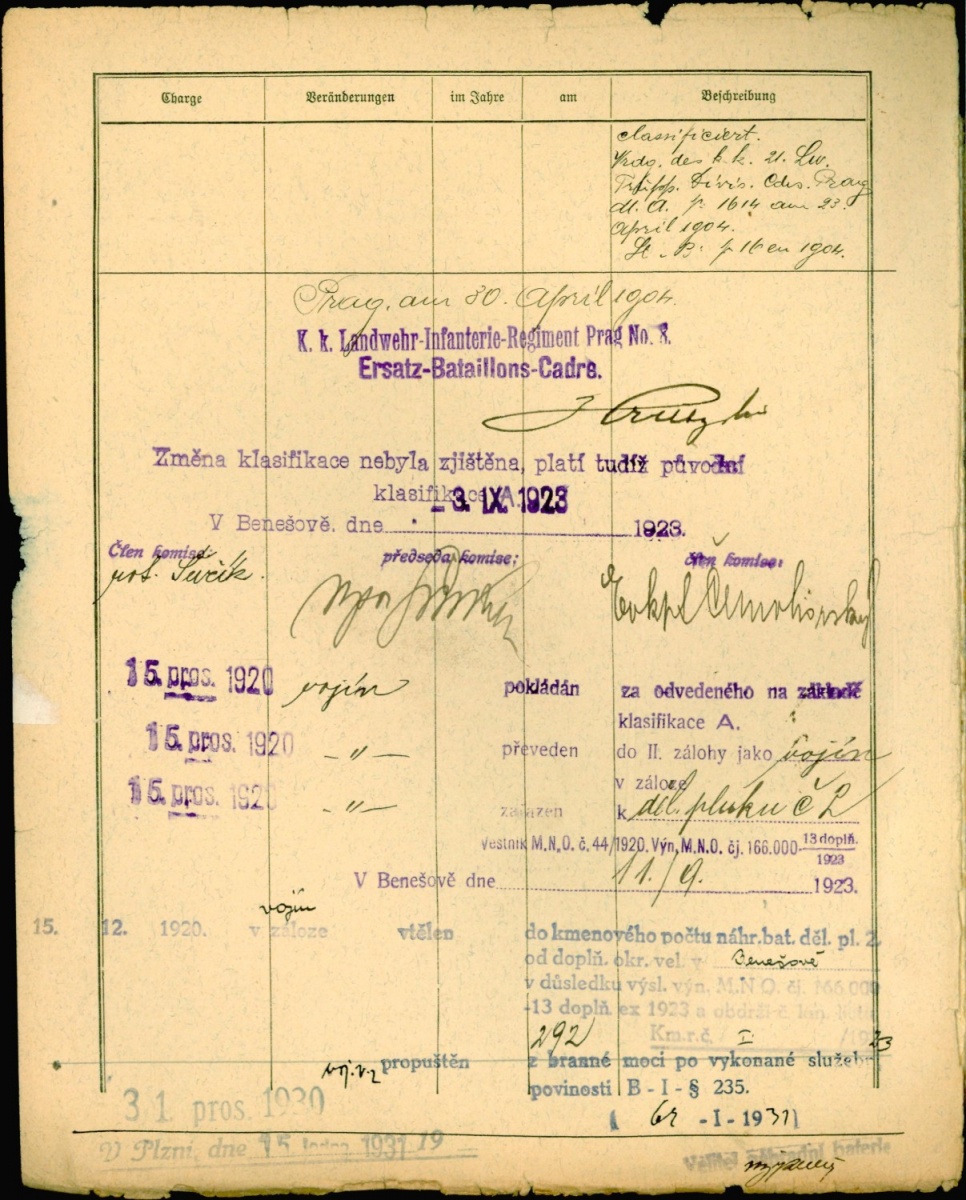 Charge Veränderungen im Jahre am Beschreibung
classificiert.
Vrdg. des k. k. 21. Lw.
Trupp. Divis. Cdos. Prag
M. A. № 1614 am 23.
April 1904.
1904.
Prag, am 30. April 1904.
K. k. Landwehr-Infanterie-Regiment Prag No. 8.
Ersatz-Bataillons-Cadre.
Změna klasifikace nebyla zjištěna, platí tudíž původní
klasifikace A.
- 3. IX. 1923
V Benešově. dne 1923.
Člen komise: předseda komise: člen komise:
rot.
15. pros. 1920 vojín pokládán za odvedeného na základě
klasifikace A.
15. pros. 1920 — " — převeden do II. zálohy jako vojín
v záloze
15. pros. 1920 — " — zařazen k děl. pluku č 2
Věstník M.N.O. č. 44/1920. Výn. M.N.O. čj. 166.000 13 doplň.
1923
V Benešově dne 11./9. 1923.
vojín
15. 12. 1920. v záloze vtělen do kmenového počtu náhr. bat. děl. pl. 2.
od doplň. okr. vel. v Benešově
v důsledku výsl. výn. M.N.O. čj. 166.000
-13 doplň. ex 1923 a obdržel č.
292 Km.r.č. I 23
voj. v z propuštěn z branné moci po vykonané služebn
povinosti B - I - § 235.
31. pros. 1930
( - I - 1931)
V Plzni, dne 15 ledna 1931 19
Velitel náhradní baterie